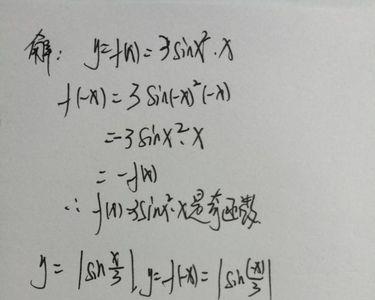 解: y=f(x)=3sinx²·x
f(-x)=3sin(-x)²(-x)
=-3sinx²·x
=-f(x)
∴ f(x)=3sinx²·x是奇函数
y=|sin x/3|, y=f(-x)=|sin (-x)/3|